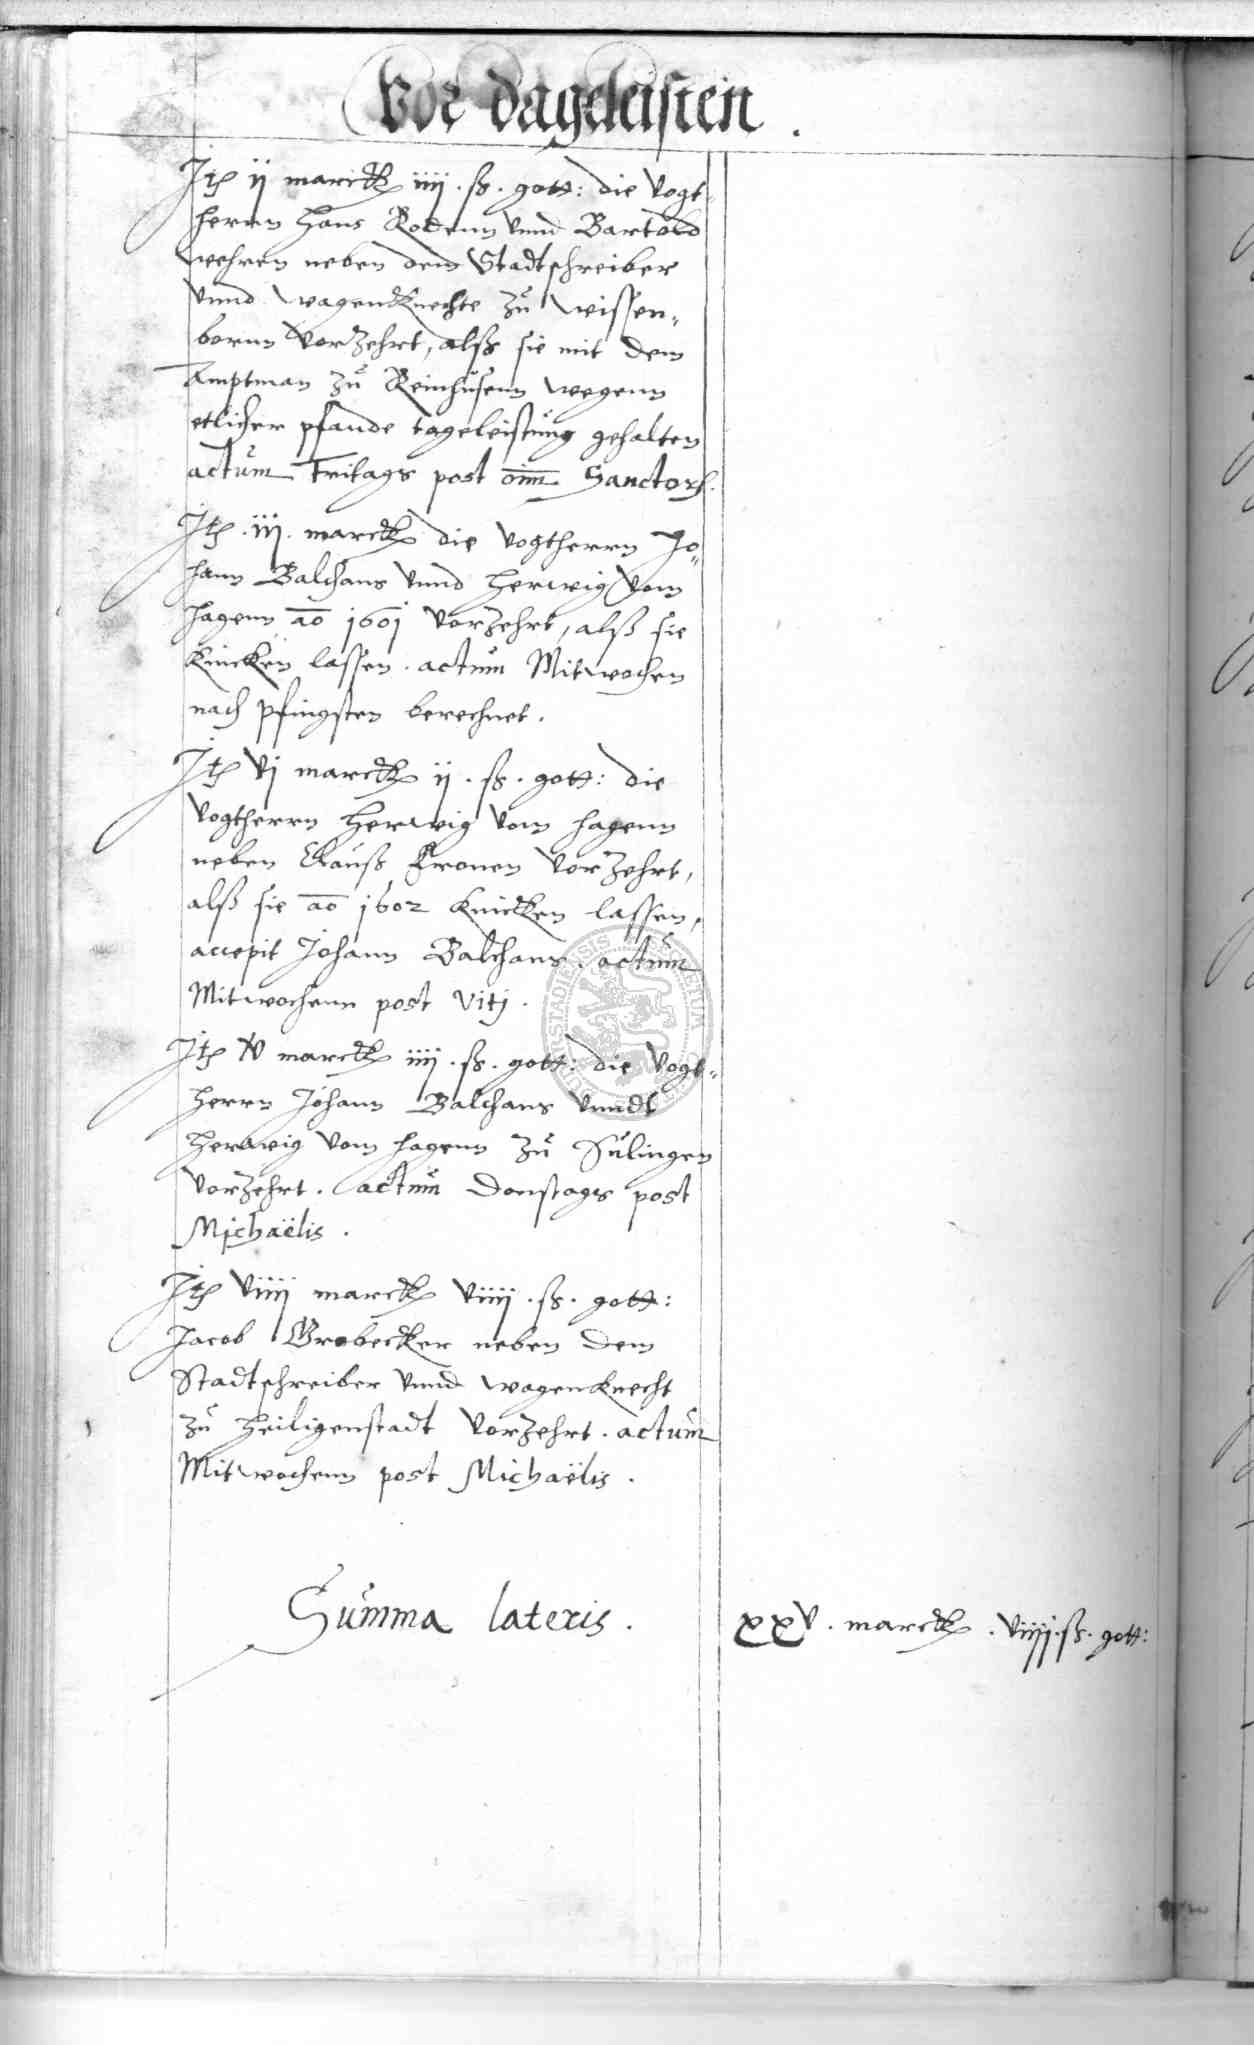 Vor dageleisten.
Itē ij marck iiij. ß. gott: die Vogt-
herrn Hans Rodenn unnd Bartold
Wehren neben dem Stadtschreiber
unnd Wagenknechte zu Wissen-
born vorzehrt, alß sie mit dem
Amptman zu Reinhusenn wegenn
etlicher pfande tageleistung gehalten
actum Fritags post oīm Sanctorū.
Itē. iij. marck die Vogtherrn Jo-
hann Balchans unnd Herwig vom
Hagenn ao 1601 vorzehrt, alß sie
knicken lassen. actum Mitwochen
nach Pfingsten berechnet.
Itē vj marck ij. ß. gott: die
Vogtherrn Herwig vom Hagenn
neben Clauß Kronen vorzehrt,
alß sie ao 1602 knicken lassen,
accepit Johann Balchans. actum
Mitwochenn post Viti.
Itē iv marck iiij. ß. gott: die Vogt-
herrn Johann Balchans unndt
Herwig vom Hagenn zu Sulingen
vorzehrt. actum Donstags post
Michaëlis.
Itē viiij marck viiij. ß. gott:
Jacob Grobecker neben dem
Stadtschreiber unnd Wagenknecht
zu Heiligenstadt vorzehrt. actum
Mitwochenn post Michaëlis.
Summa lateris. xxv. marck. viiij. ß. gott: